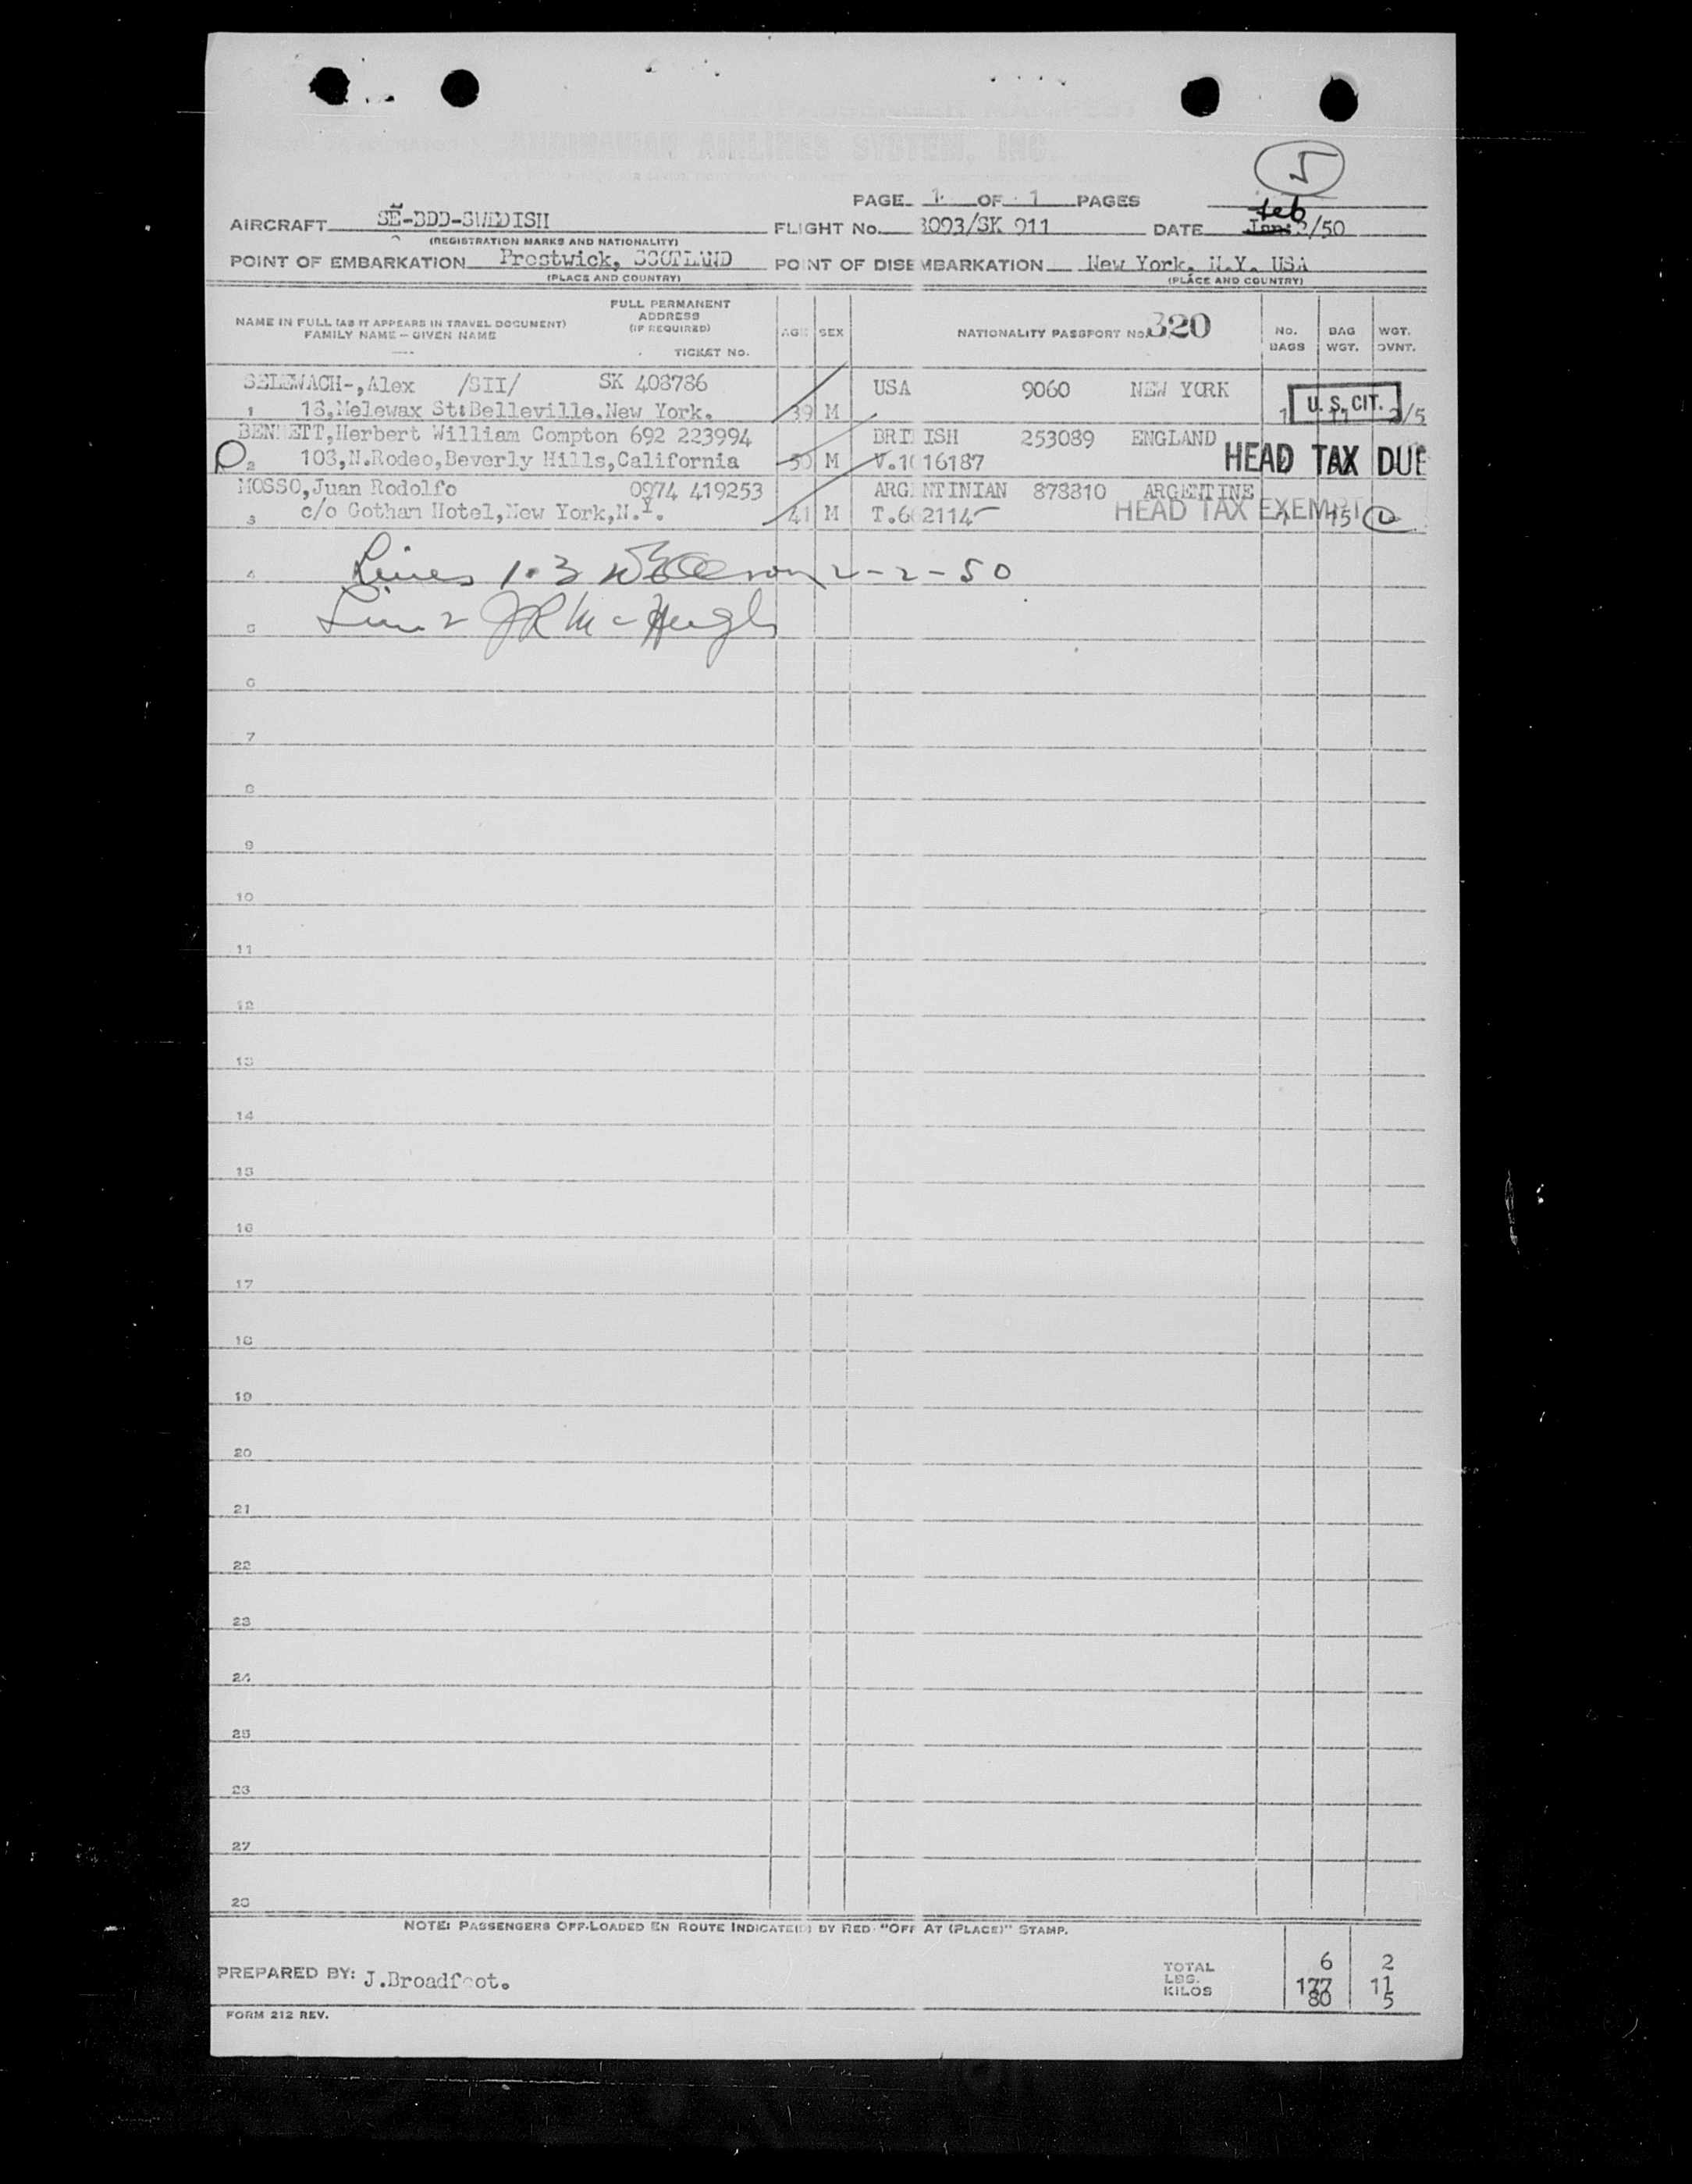 AIRLINES SYSTEM, INC.
5
PAGE 1 OF 1 PAGES
Feb
AIRCRAFT SE-BDD-SWEDISH FLIGHT No. 3093/SK 911 DATE Jan: 2/50
(REGISTRATION MARKS AND NATIONALITY)
POINT OF EMBARKATION Prestwick, SCOTLAND POINT OF DISEMBARKATION New York, N.Y. USA
(PLACE AND COUNTRY) (PLACE AND COUNTRY)
FULL PERMANENT
ADDRESS
NAME IN FULL (AS IT APPEARS IN TRAVEL DOCUMENT) (IF REQUIRED) AGE SEX NATIONALITY PASSPORT No. 320 No. BAG WGT.
FAMILY NAME - GIVEN NAME BAGS WGT. OVNT.
TICKET No.
SELEWACH-,Alex /SII/ SK 408786 USA 9060 NEW YORK
1 18,Melewax St:Belleville.New York. 39 M 1 U. S. CIT. 2/5
BENNETT,Herbert William Compton 692 223994 BRITISH 253089 ENGLAND
2 103,N.Rodeo,Beverly Hills,California 50 M V.1016187 HEAD TAX DUE
MOSSO,Juan Rodolfo 0974 419253 ARGENTINIAN 878810 ARGENTINE
3 c/o Gotham Hotel,New York,N.Y. 41 M HEAD TAX EXEMPT
4 Lines 1-3 2-2-50
5 Line 2 JR McHugh
6
7
8
9
10
11
12
13
14
15
16
17
18
19
20
21
22
23
24
25
26
27
28
NOTE: PASSENGERS OFF-LOADED EN ROUTE INDICATED BY RED "OFF AT (PLACE)" STAMP.
PREPARED BY: J.Broadfoot.
TOTAL 6 2
LBS. 177 11
KILOS 80 5
FORM 212 REV.